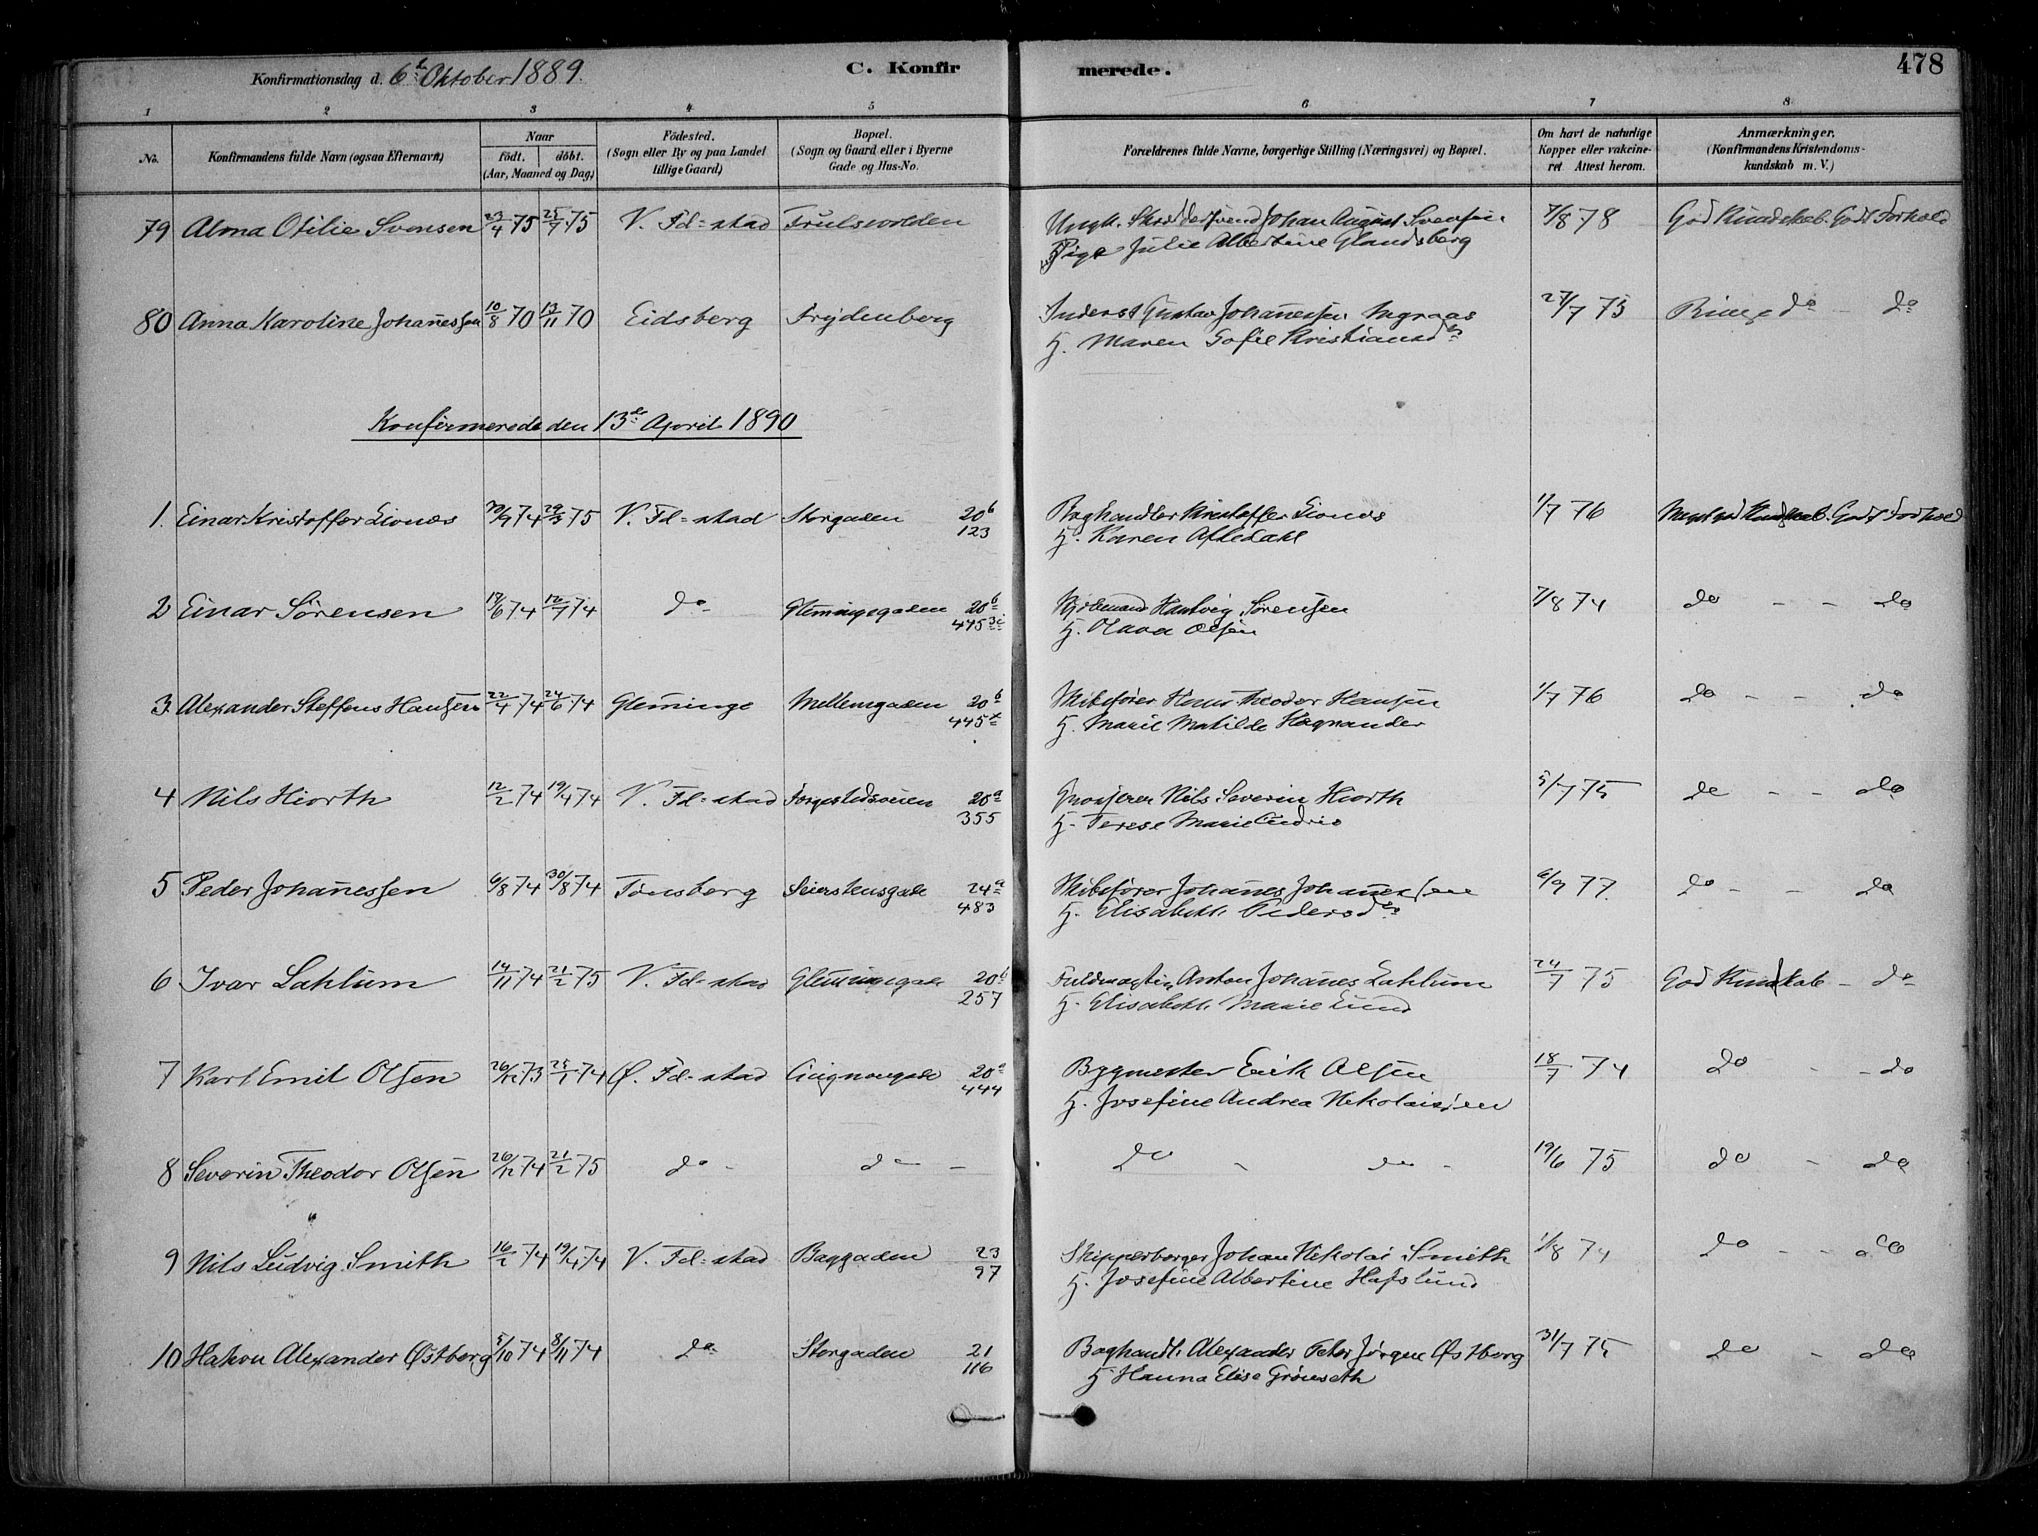 478
Konfirmationsdag d. 6te Oktober 1889.
C. Konfirmerede.
1 2 3 4 5 6 7 8
No.
Konfirmandens fulde Navn (ogsaa Efternavn)
Naar
födt. döbt.
(Aar, Maaned og Dag)
Födested.
(Sogn eller By og paa Landet
tillige Gaard)
Bopæl.
(Sogn og Gaard eller i Byerne
Gade og Hus-No.
Forældrenes fulde Navne, borgerlige Stilling (Næringsvei) og Bopæl.
Om havt de naturlige
Kopper eller vakcine-
ret Attest herom.
Anmærkninger.
(Konfirmandens Kristendoms-
kundskab m. V.)
79 Alma Otilie Svensen 23/4 75 25/7 75 V. Fd-stad Trulsvolden Ungk. Skræddersvend Johan August Svensen 7/8 78 God Kundskab. Godt Forhold
Pige Julie Albertine Glandsberg
80 Anna Karoline Johannessen 10/8 70 13/11 70 Eidsberg Frydenberg Inderst Gustav Johannessen 27/7 75 do - do
H. Maren Sofie Kristiansdr
Konfirmerede den 13de April 1890
1. Einar Kristoffer Lionæs 30/9 74 29/3 75 V. Fd-stad Storgaden 20b Boghandler Kristoffer Lionæs 1/7 76 Meget god Kundskab. Godt Forhold
123 H. Karen Aftedahl
2 Einar Sörensen 19/6 74 12/7 74 do Glemmingegaden 20b Hartvig Sörensen 7/8 74 do - - do
445 H. Olava Olsen
3. Alexander Steffens Hansen 22/4 74 24/6 74 Glemminge Mellemgaden 20b Skibsfører Theodor Hansen 1/7 76 do - - do
445 H. Marie Matilde Hagnander
4 Nils Hiorth 12/2 74 19/4 74 V. Fd-stad Færgestedsveien 20a Grosserer Nils Severin Hiorth 5/7 75 do - - do
355 H. Terese Marie
5 Peder Johannessen 6/8 74 30/8 74 Tönsberg Seierstensgade 24a Skibsfører Johannes Johannessen 6/9 77. do - - do
483 H. Elisabeth Pedersdr
6 Ivar Lahlum 14/11 74 21/2 75 V. Fd-stad Glemmingegade 20b Fuldmægtig Anton Johannes Lahlum 24/7 75 God Kundskab - do
257 H. Elisabeth Marie Lund
7 Karl Emil Olsen 26/12 73 25/1 74 Ø. Fd-stad Cicignongade 20a Bygmester Erik Olsen 18/7 74 do - - do
444 H. Josefine Andrea Nikolaisen
8 Severin Theodor Olsen 26/12 74 21/2 75 do - do - do - do - 19/6 75 do - do
9 Nils Ludvig Smith 16/2 74 19/4 74 V. Fd-stad Baggaden 23 Skipperborger Johan Nikolai Smith 1/8 74 do - - do
97 H. Josefine Albertine Hafslund
10 Hakon Alexander Østberg 5/10 74 8/11 74 do Storgaden 21 Boghandl. Alexander Peter Jørgen Østberg 31/7 75 do - do
116 H. Hanna Elise Grönseth